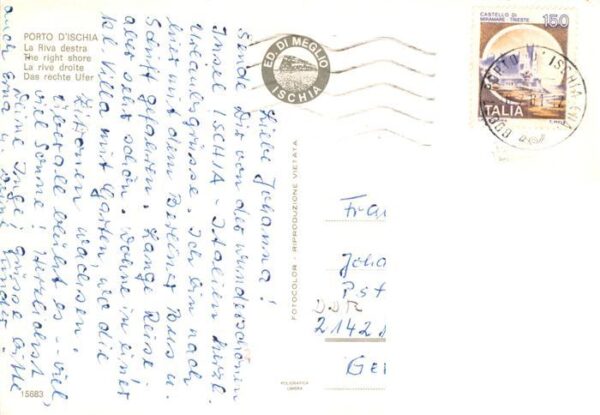 PORTO D'ISCHIA
La Riva destra
The right shore
La rive droite
Das rechte Ufer
ED. DI MEGLIO
ISCHIA
CASTELLO DI
MIRAMARE - TRIESTE
150
ITALIA
PORTO D'ISCHIA
Liebe Johanna!
Sende Dir von der wunderschönen
Insel ISCHIA - Italien herzl.
Urlaubsgrüsse. Ich bin nach
hier mit dem Berliner Bus u.
Schiff gefahren. Lange Reise
aber sehr schön. Wohne in einer
kl. Villa mit Garten, wo die
Zitronen wachsen.
Überall blüht es -- viel,
viel Sonne! Herzlichst
Deine Inge! Grüsse bitte
auch
FOTOCOLOR - RIPRODUZIONE VIETATA
Frau
Joha
Pst
DDR
2142
Ge
15683